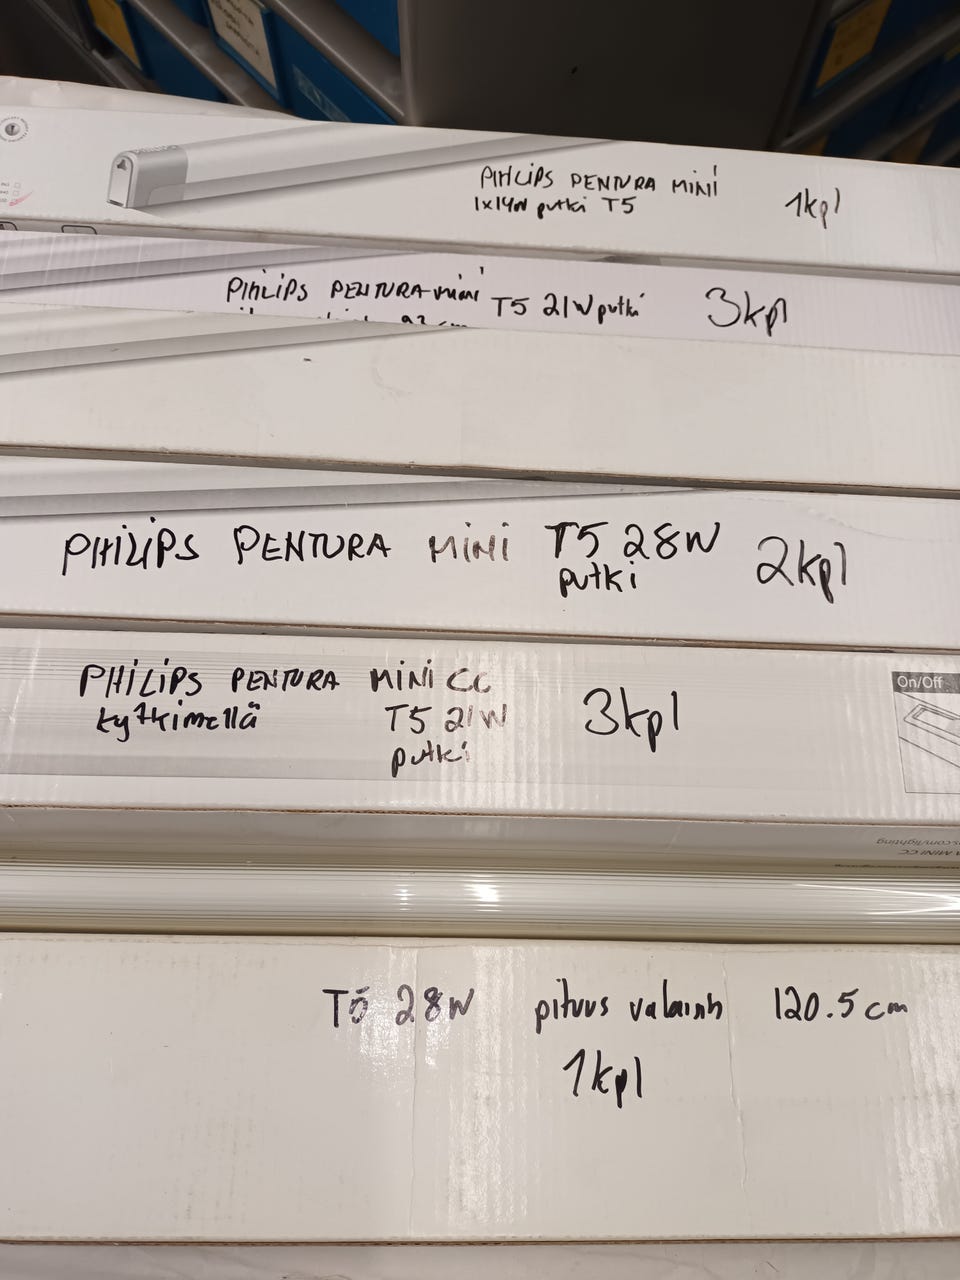 PHILIPS PENTURA MINI 1kpl
1x14W putki T5
PHILIPS PENTURA mini T5 21W putki 3kpl
PHILIPS PENTURA MINI T5 28W 2kpl
putki
PHILIPS PENTURA MINI CC
kytkimellä T5 21W 3kpl
putki
On/Off
MINI CC
T5 28W pituus valaisin 120.5 cm
1kpl